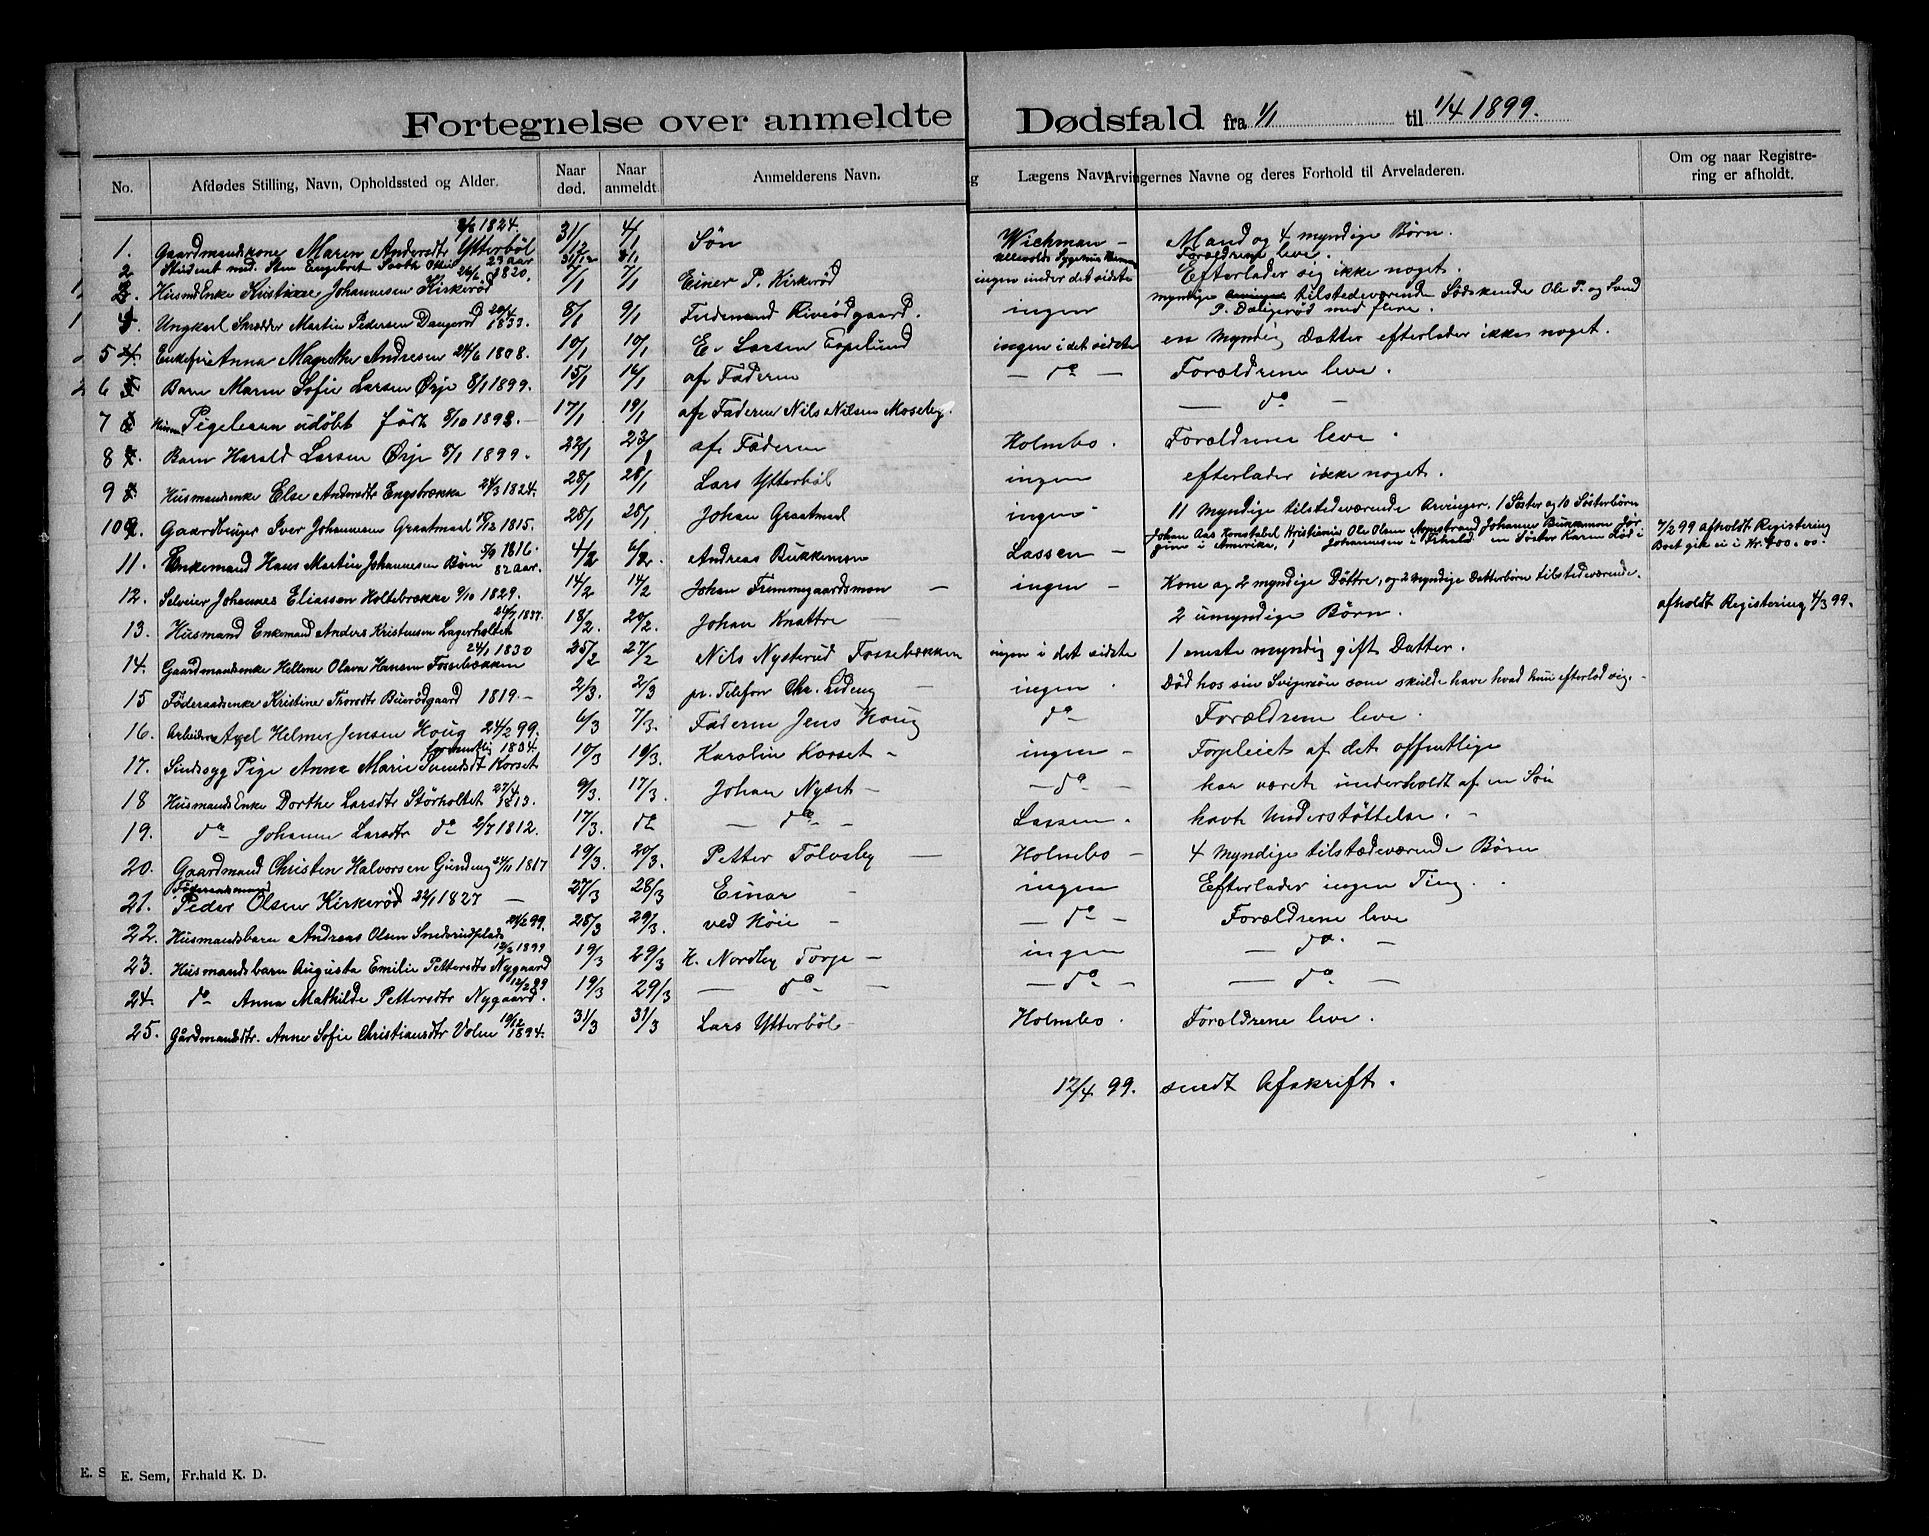 Fortegnelse over anmeldte Dødsfald fra 1/1 til 1/4 1899.
No. Afdødes Stilling, Navn, Opholdssted og Alder. Naar død. Naar anmeldt. Anmelderens Navn. Lægens Navn Arvingernes Navne og deres Forhold til Arveladeren. Om og naar Registrering er afholdt.
1. Gaardmandskone Maren Andersdtr Ytterböl 1824. 31/12 4/1 Søn Wichman – Mand og 4 myndige Børn.
2 Student med. Sten Engebret 23 aar 31/12 Ullevolds Sygehus Forældrene leve.
3 Husmd Enke Kristine Johannesen Kirkeröd 26/6 1820. 7/1 7/1 Einer P. Kirkeröd ingen under det sidste Efterlader sig ikke noget.
4 Ungkarl Skrædder Martin Pedersen 20/4 1833. 8/1 9/1 Ferdinand ingen myndige tilstedeværende Sødskende Ole P. og Svend P. med flere.
5 Enkefrie Anna Magrethe Andresen 24/6 1808. 10/1 10/1 E. Larsen ingen i det sidste en myndig Datter efterlader ikke noget.
6 Barn Maren Sofie Larsen Ørje 8/1 1899. 15/1 16/1 af Faderen – do – Forældrene leve.
7 Pigebarn udöbt födt 8/10 1898. 17/1 19/1 af Faderen Nils Nilsen Moseby. – do –
8 Barn Harald Larsen Ørje 8/1 1899. 22/1 23/1 af Faderen Holmbo. Forældrene leve.
9 Husmandsenke Else Andersdtr Engebrække 24/3 1824. 28/1 28/1 Lars Ytterböl ingen efterlader ikke noget.
10 Gaardbruger Iver Johannesen Graatmael 1815. 28/1 28/1 Johan Graatmael ingen 11 myndige tilstedeværende Arvinger, 1 Søster og 10 Søsterbörn
11. Enkemand Hans Martin Johannesen Börn 5/9 1816. 82 aar. 4/2 6/2. Andreas Bukkemoen Lassen – Johan Aas Konstabel Kristiania Ole Olsen Johannes Bukkemoen i Amerika, Johannesen i Frhald en Søster Karen Død i 7/2 99 afholdt Registering Boet gik ei i Kr. 400.00.
12. Selveier Johannes Eliassen Holtebrække 9/10 1829. 14/2 14/2 Johan Fremmegaardsmoen – ingen – Kone og 2 myndige Döttre, og 2 myndige Datterbörn tilstedeværende.
13. Husmand Enkemand Anders Kristensen Lagerholtet 1837. 18/2. 20/2. Johan Knattre 2 umyndige Börn. afholdt Registering 4/3 99.
14. Gaardmandsenke Hellene Olava Hansen Fossebækken 24/1 1830 25/2 27/2 Nils Nysterud Fossebækken ingen i det sidste 1 eneste myndig gift Datter.
15 Föderaadsenke Kristine Thorsdtr Buerödgaard 1819 – 2/3. 2/3 pr. Telefon Chr. Lideng – ingen. Død hos sin Svigersön som skulde have hvad hun efterlod sig. –
16. Arbeiders Axel Helmer Jensen Houg 24/2 99. 6/3 7/3. Faderen Jens Houg do Forældrene leve.
17. Sindsyg Pige Anna Marie Svendsdt Korset 1834. 10/3 19/3. Karolin Korset – ingen – Forpleiet af det offentlige
18 Husmands Enke Dorthe Larsdtr Störholtet 27/4 1813. 9/3. 17/3. Johan Nyset – – do – har været underholdt af en Sön
19. do Johanne Larsdtr do 2/7 1812. 17/3. do – do – Lassen. havt Understöttelse. –
20. Gaardmand Christen Halvorsen Gundeng 24/11 1817 19/3. 20/3. Petter Tolvsby – Holmbo – 4 myndige tilstædeværende Börn
21. Föderaadsmand Peder Olsen Kirkeröd 22/1 1827 – 27/3 28/3 Einar – ingen Efterlader ingen Ting.
22. Husmandsbarn Andreas Olsen Smderudplads 21/2 99. 28/3 29/3. ved Höie – – do – Forældrene leve
23. Husmandsbarn Augusta Emilie Pettersdtr Nygaard 12/2 1899 19/3 29/3 K. Nordby Torje – ingen – do. –
24. do Anna Mathilde Pettersdtr Nygaard. 12/2 99 19/3 29/3 – do – – do – – do –
25. Gårdmandsdtr. Anne Sofie Christiansdtr Volen 19/12 1894. 31/3 31/3 Lars Ytterböl Holmbo. Forældrene leve.
12/4 99. sendt Afskrift.
E. S E. Sem, Fr.hald K. D.